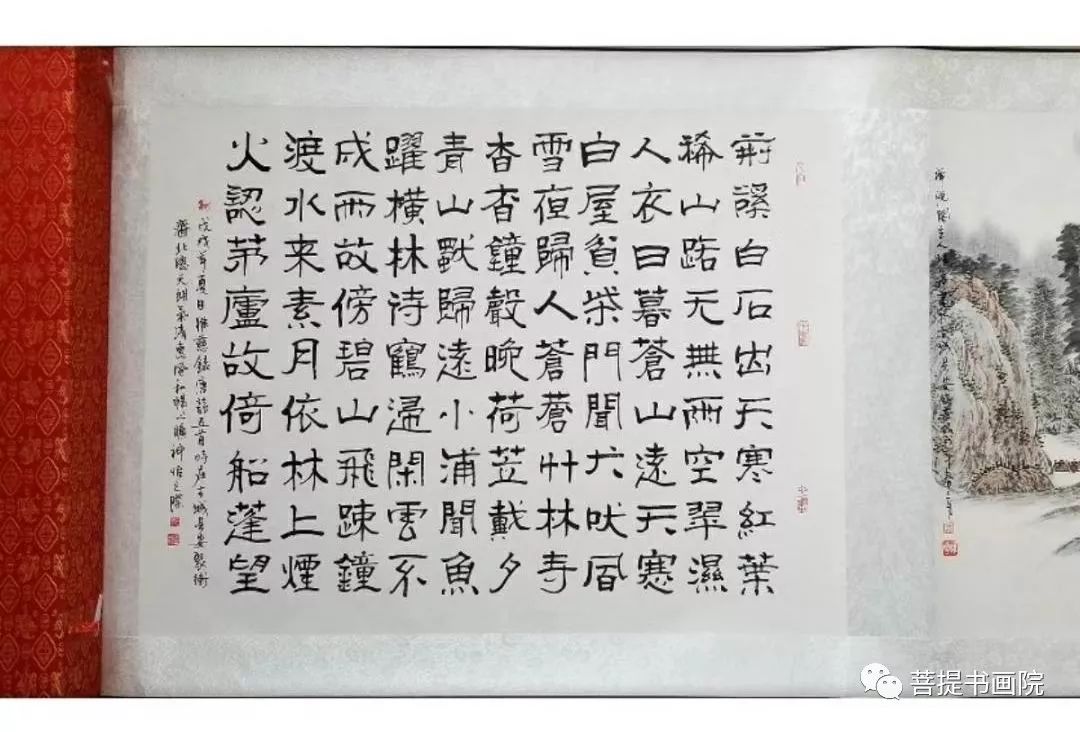 荊谿白石出天寒紅葉
稀山路元無雨空翠濕
人衣日暮蒼山遠天寒
白屋貧柴門聞犬吠風
雪夜歸人蒼蒼竹林寺
杳杳鐘聲晚荷笠戴夕
青山獨歸遠小浦聞魚
躍橫林待鶴歸閑雲不
成雨故傍碧山飛踈鐘
渡水来素月依林上煙
火認茅廬故倚船篷望
戊戌年夏日惟慧錄唐詩五首時在古城
齋北牕天朗氣清惠風和暢心曠神怡之際
菩提书画院